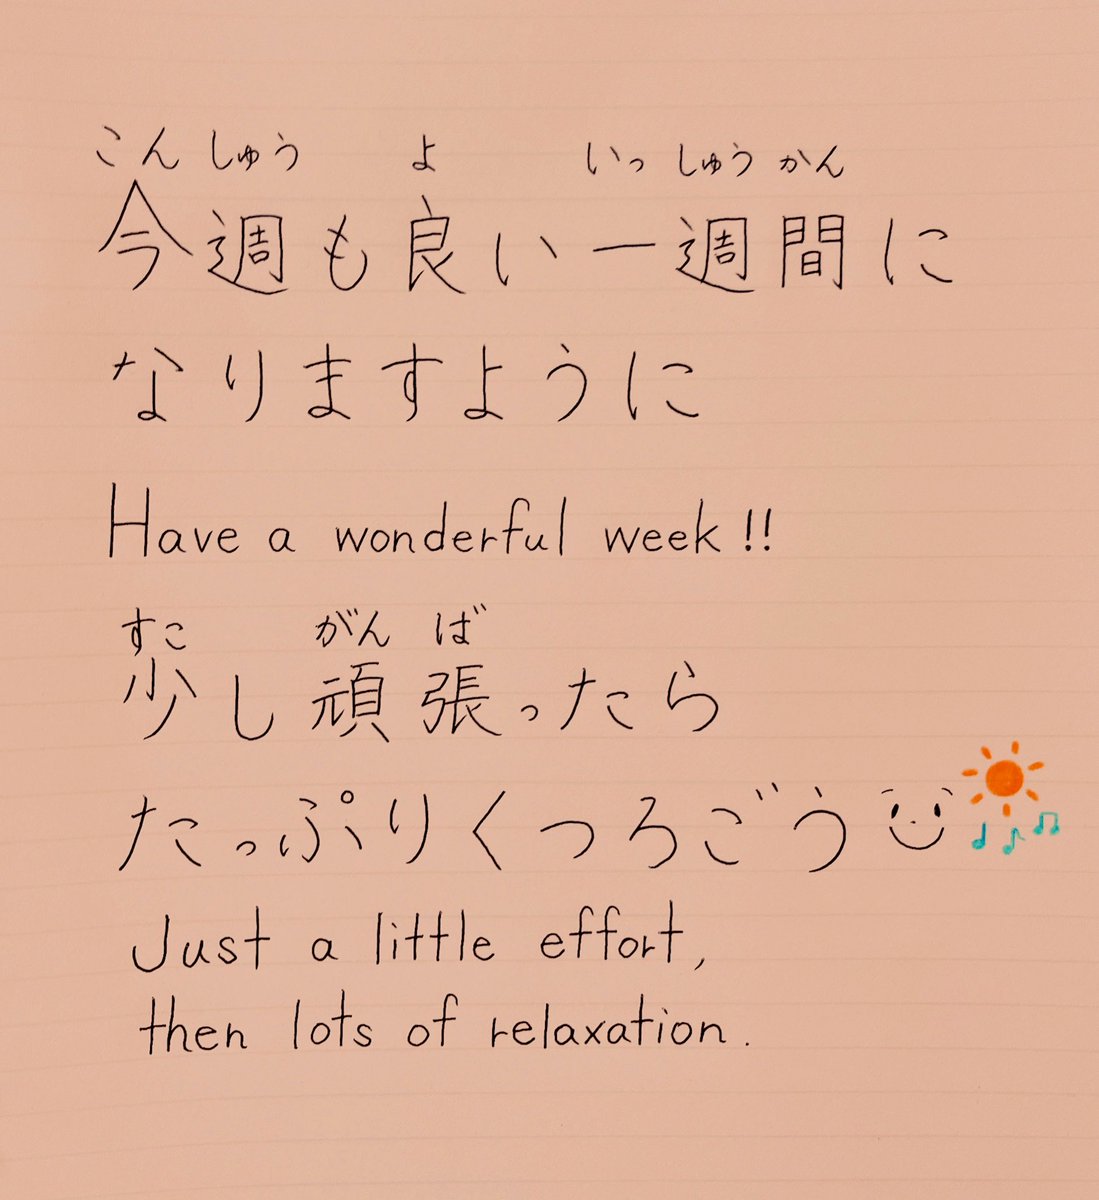 こんしゅう よ いっしゅうかん
今週も良い一週間に
なりますように
Have a wonderful week!!
すこ がんば
少し頑張ったら
たっぷりくつろごう
Just a little effort,
then lots of relaxation.